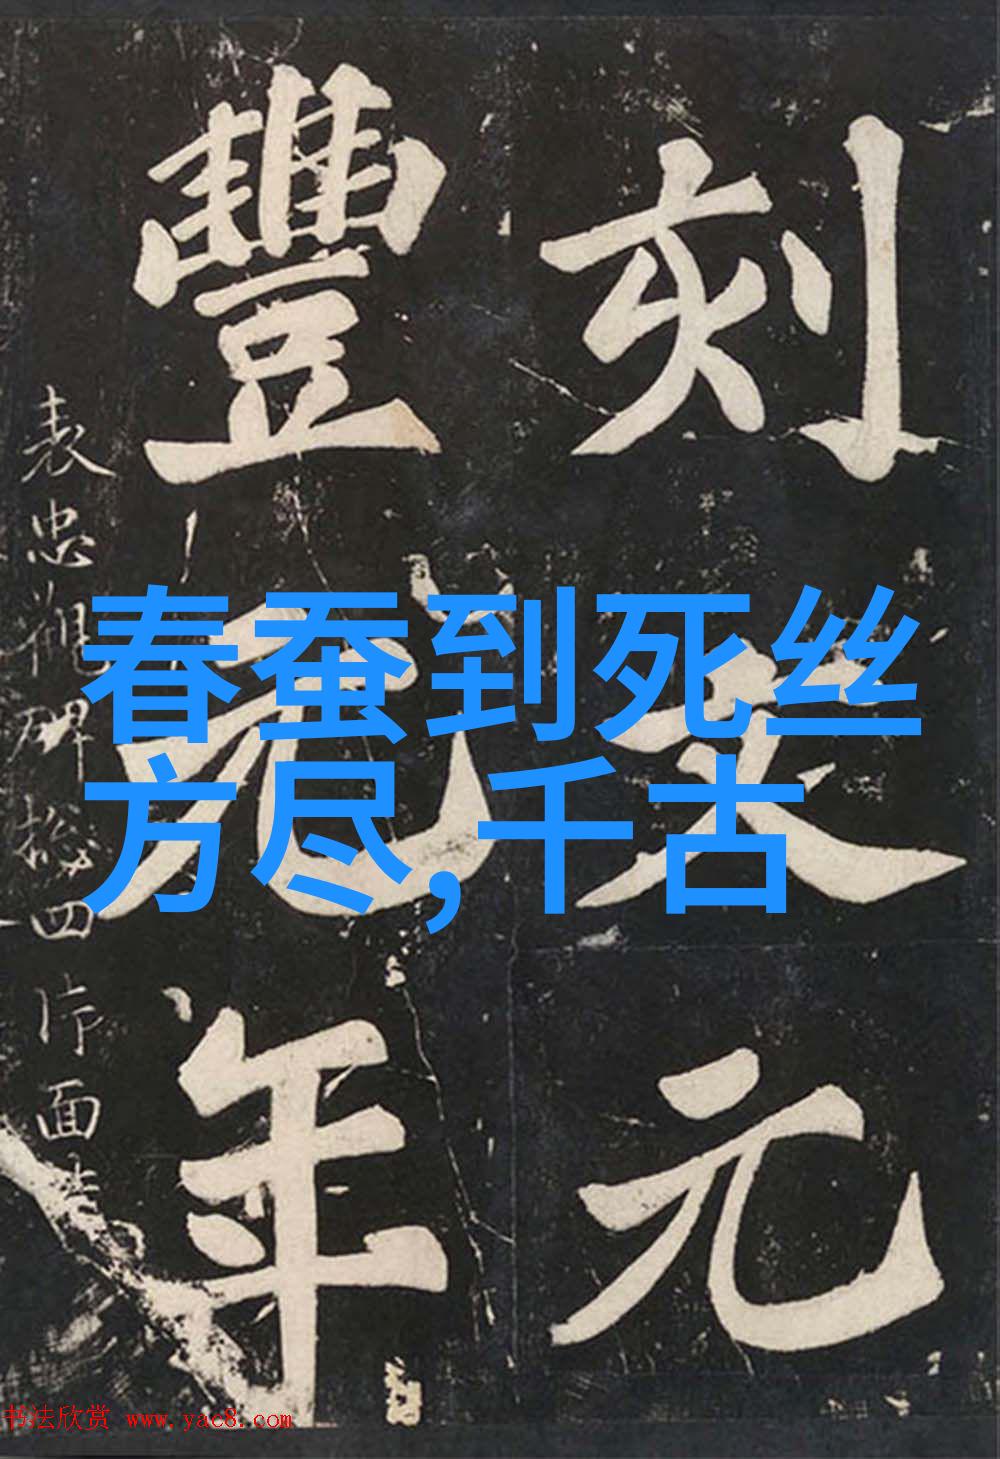 刻文元
豐元年
表忠 碑 四片面
春蚕到死丝
方尽,千古
书法欣赏 www.yac8.com